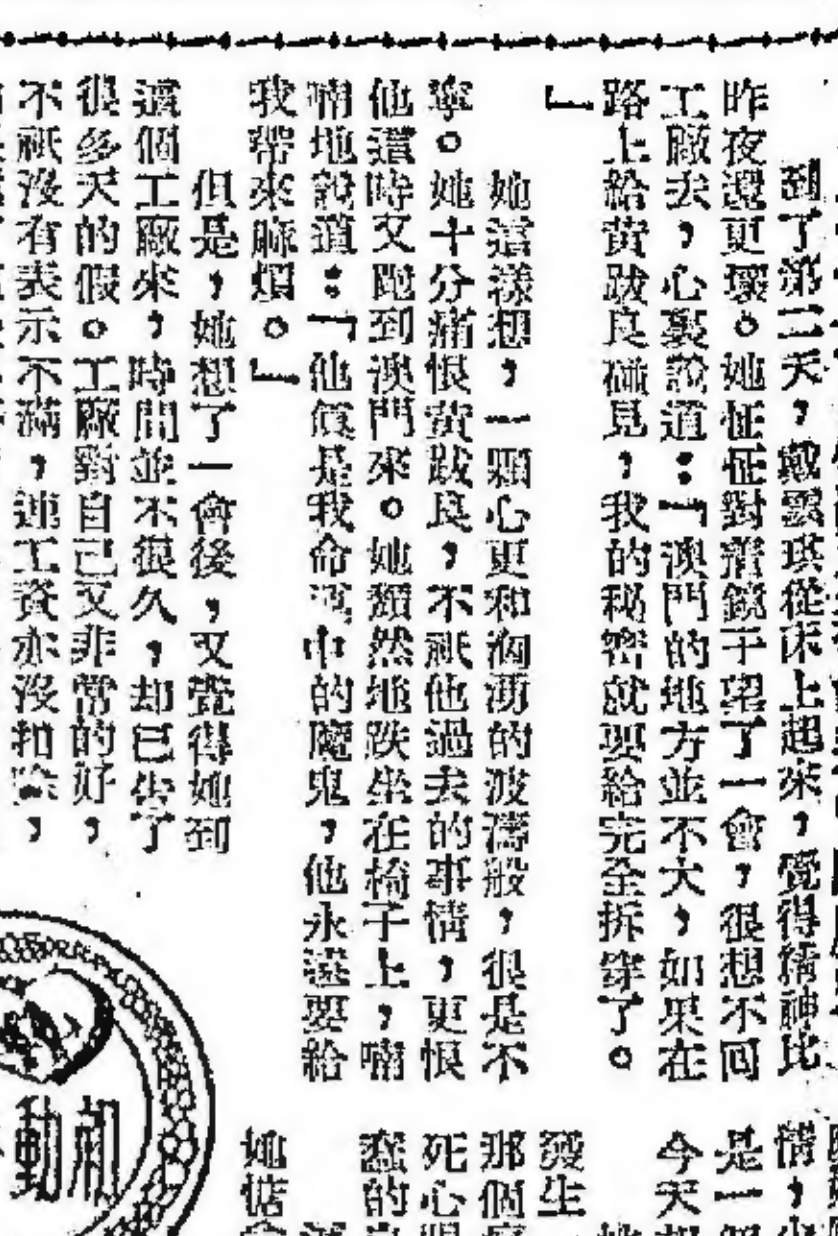 到了第二天,戴雲琪從床上起來,覺得精神比
昨夜還更壞。她怔怔對着鏡子望了一會,很想不回
工廠去,心裏說道:「澳門的地方並不大,如果在
路上給黃跛良碰見,我的秘密就要給完全拆穿了。
」
她這樣想,一顆心更和洶湧的波濤般,很是不
寧。她十分痛恨黃跛良,不祇他過去的事情,更恨
他這時又跑到澳門來。她頹然地跌坐在椅子上,喃
喃地說道:「他眞是我命運中的魔鬼,他永遠要給
我帶來麻煩。」
但是,她想了一會後,又覺得她到
這個工廠來,時間並不很久,却已告了
很多天的假。工廠對自己又非常的好,
不祇沒有表示不滿,連工資亦沒扣除,
情,
是一
今天
發生
那個
死心
蠢的
她惦